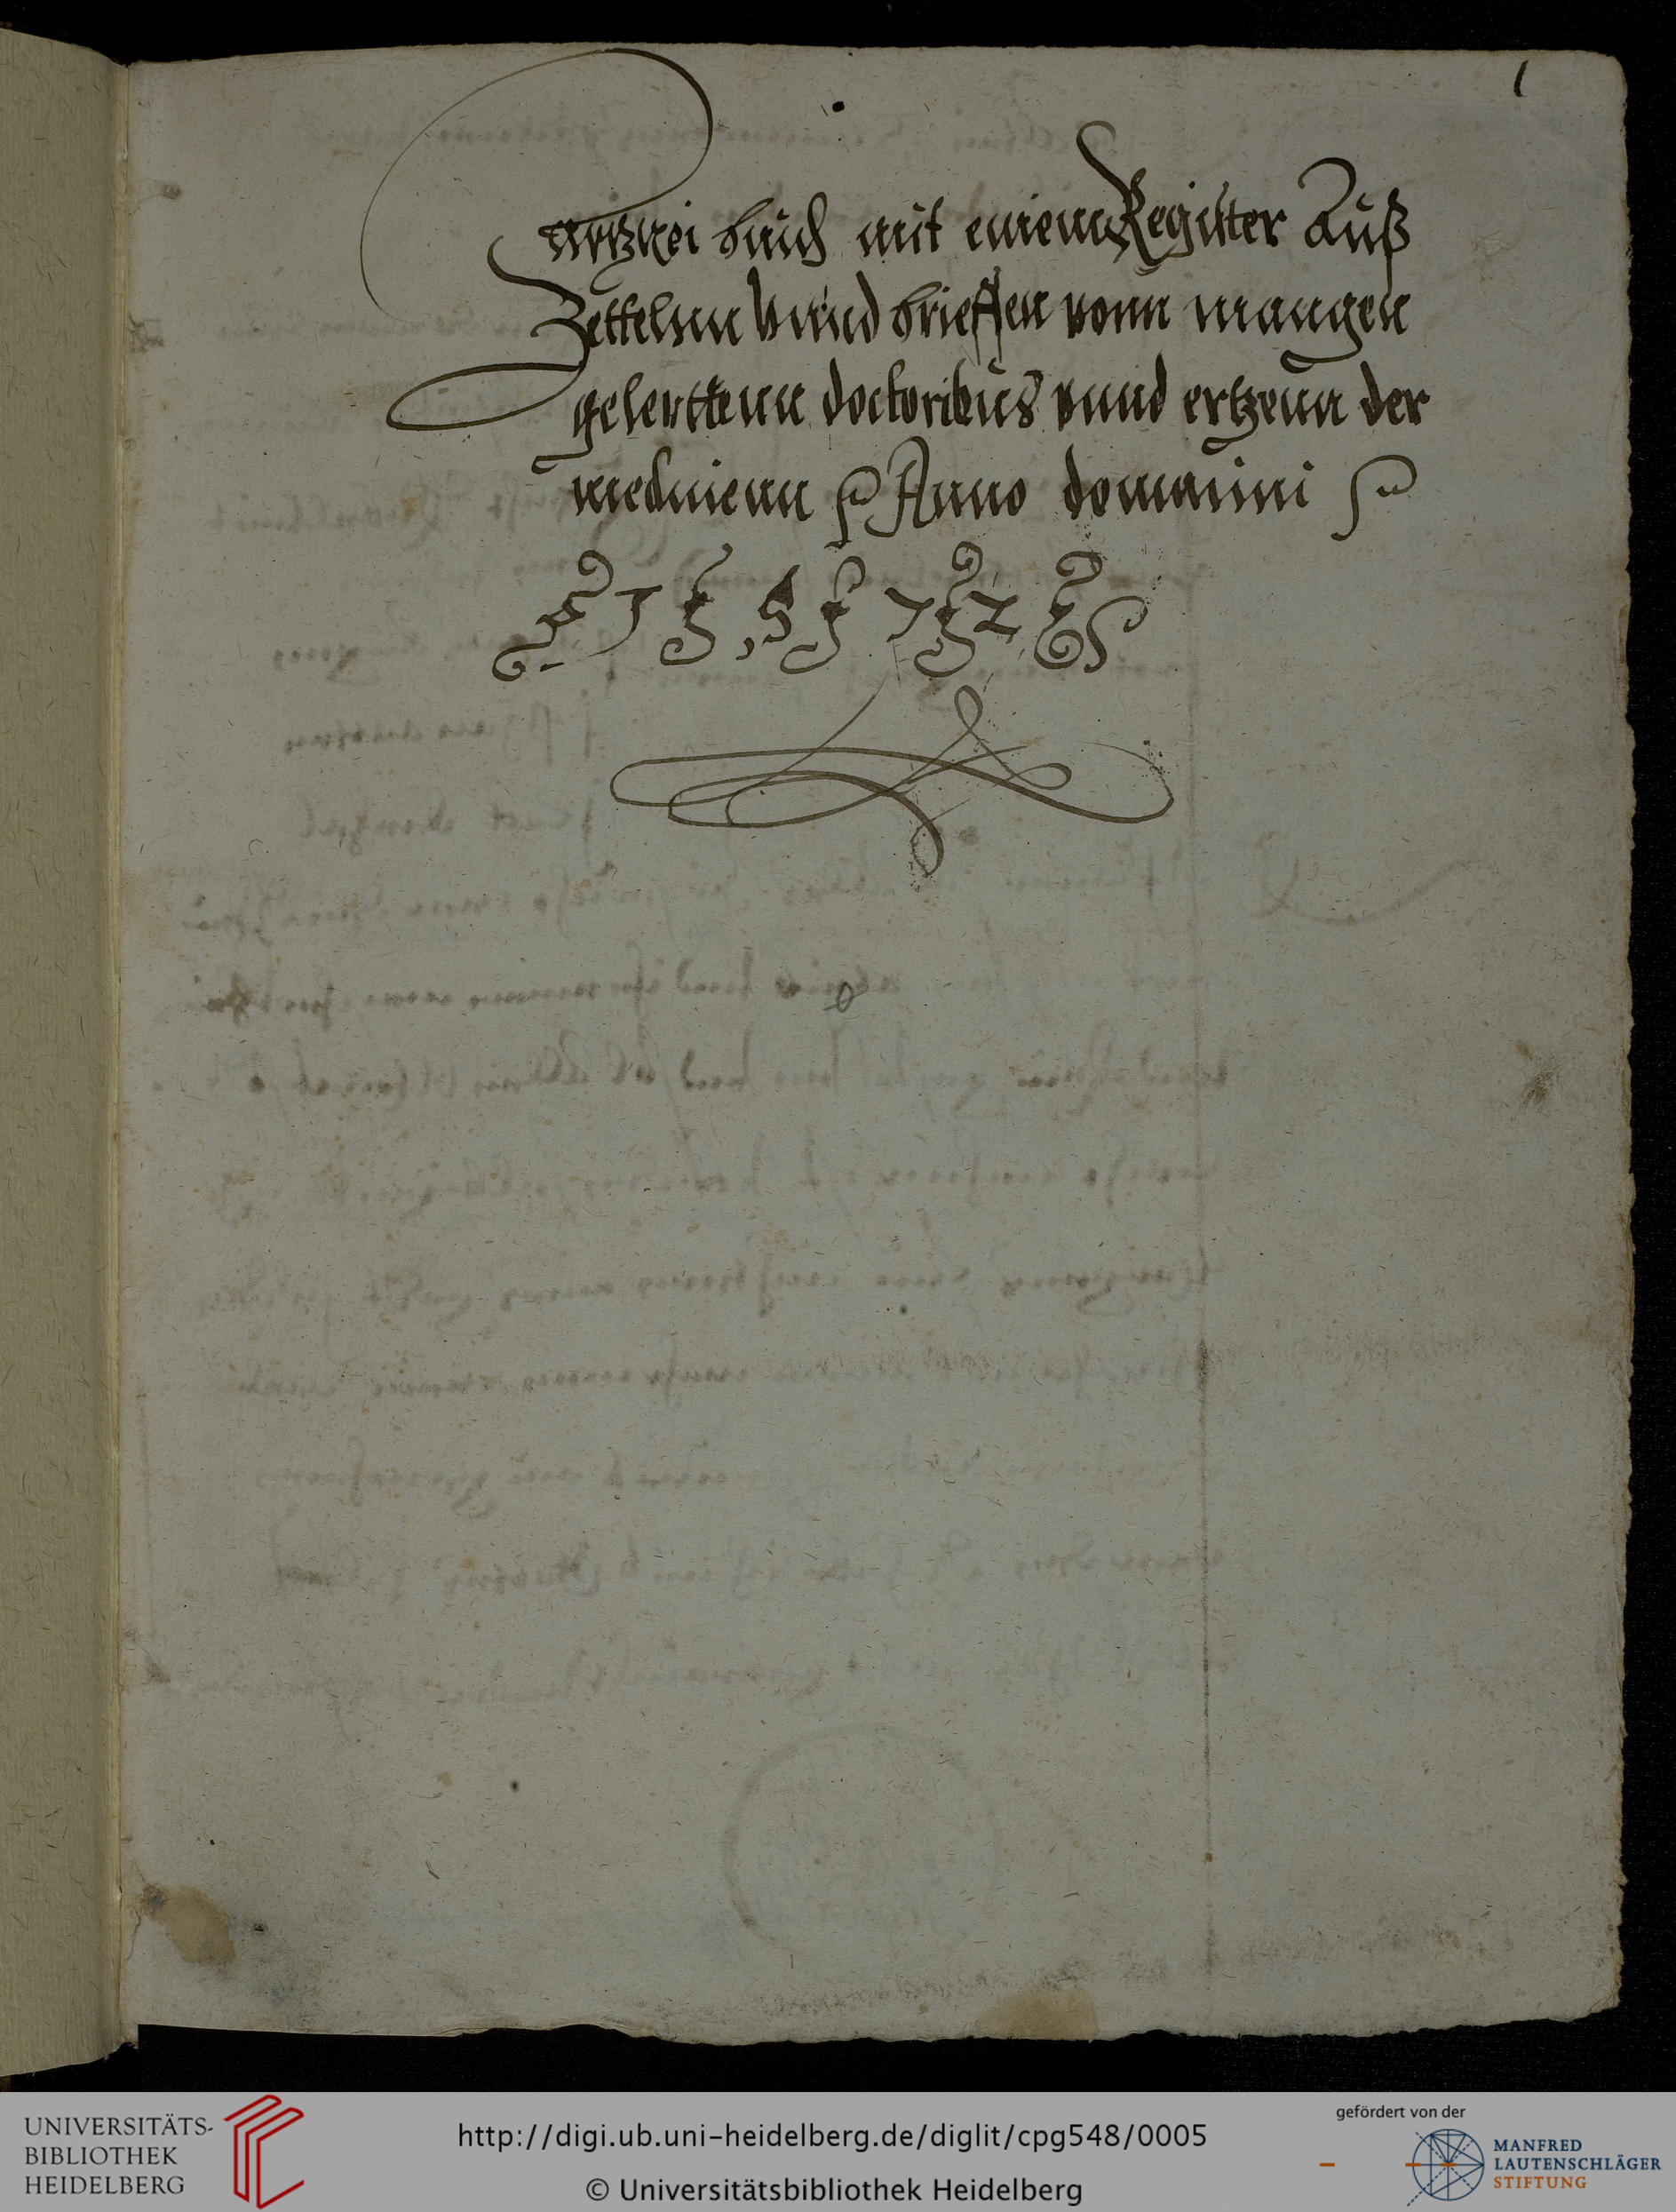 1
Artznei buch mit einem Register Auß
Zettelnn vnnd brieffen vonn mangen
gelerttenn doctoribus vnnd ertzenn der
medinienn Anno dominini
1 5 7 2
UNIVERSITÄTS-
BIBLIOTHEK
HEIDELBERG
http://digi.ub.uni-heidelberg.de/diglit/cpg548/0005
© Universitätsbibliothek Heidelberg
gefördert von der
MANFRED
LAUTENSCHLÄGER
STIFTUNG